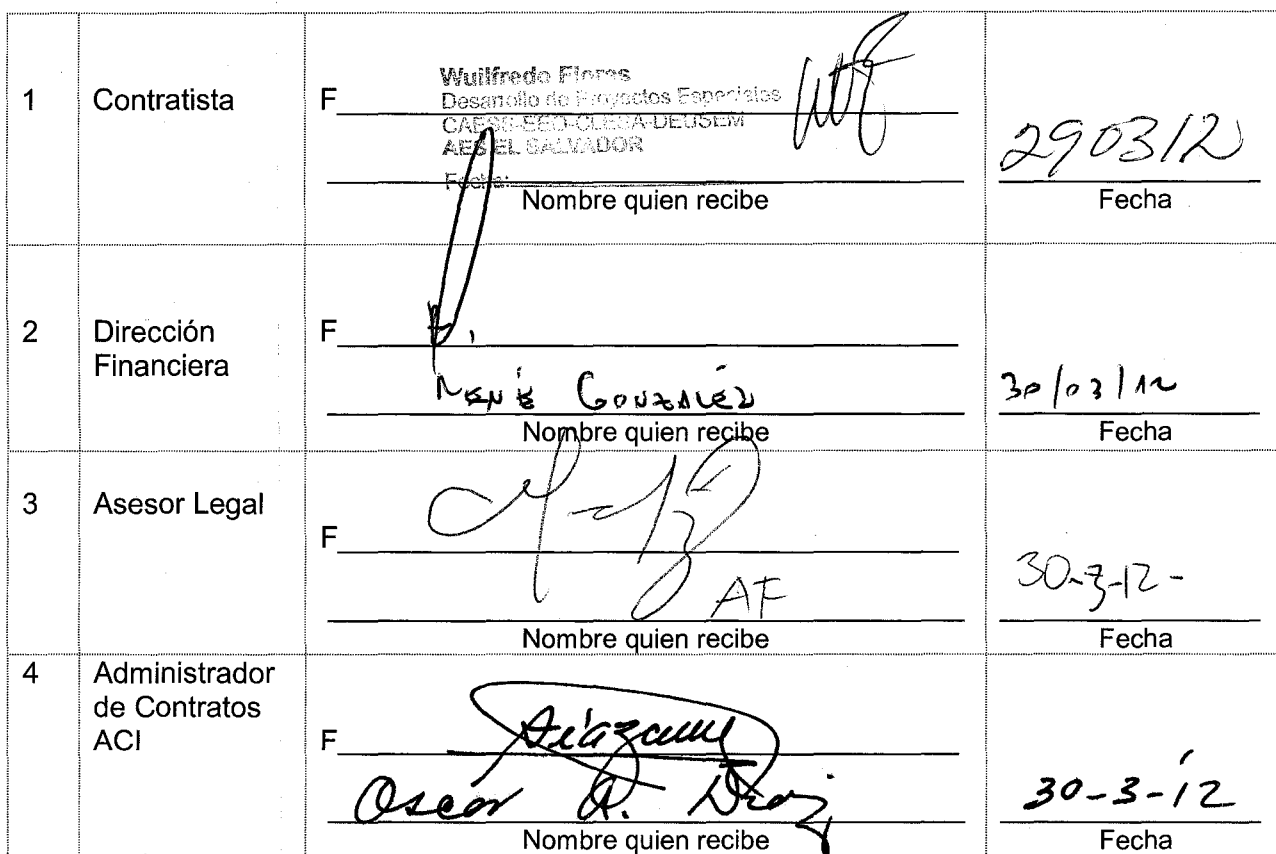 1 Contratista F
Wuilfredo Flores
Desarrollo de Proyectos Especiales
CAESS-EEO-CLESA-DEUSEM
AES EL SALVADOR
Fecha:
290312
Nombre quien recibe Fecha
2 Dirección Financiera F
René González 30/03/12
Nombre quien recibe Fecha
3 Asesor Legal F
AF 30-3-12-
Nombre quien recibe Fecha
4 Administrador de Contratos ACI F
Oscar A. Diaz 30-3-12
Nombre quien recibe Fecha